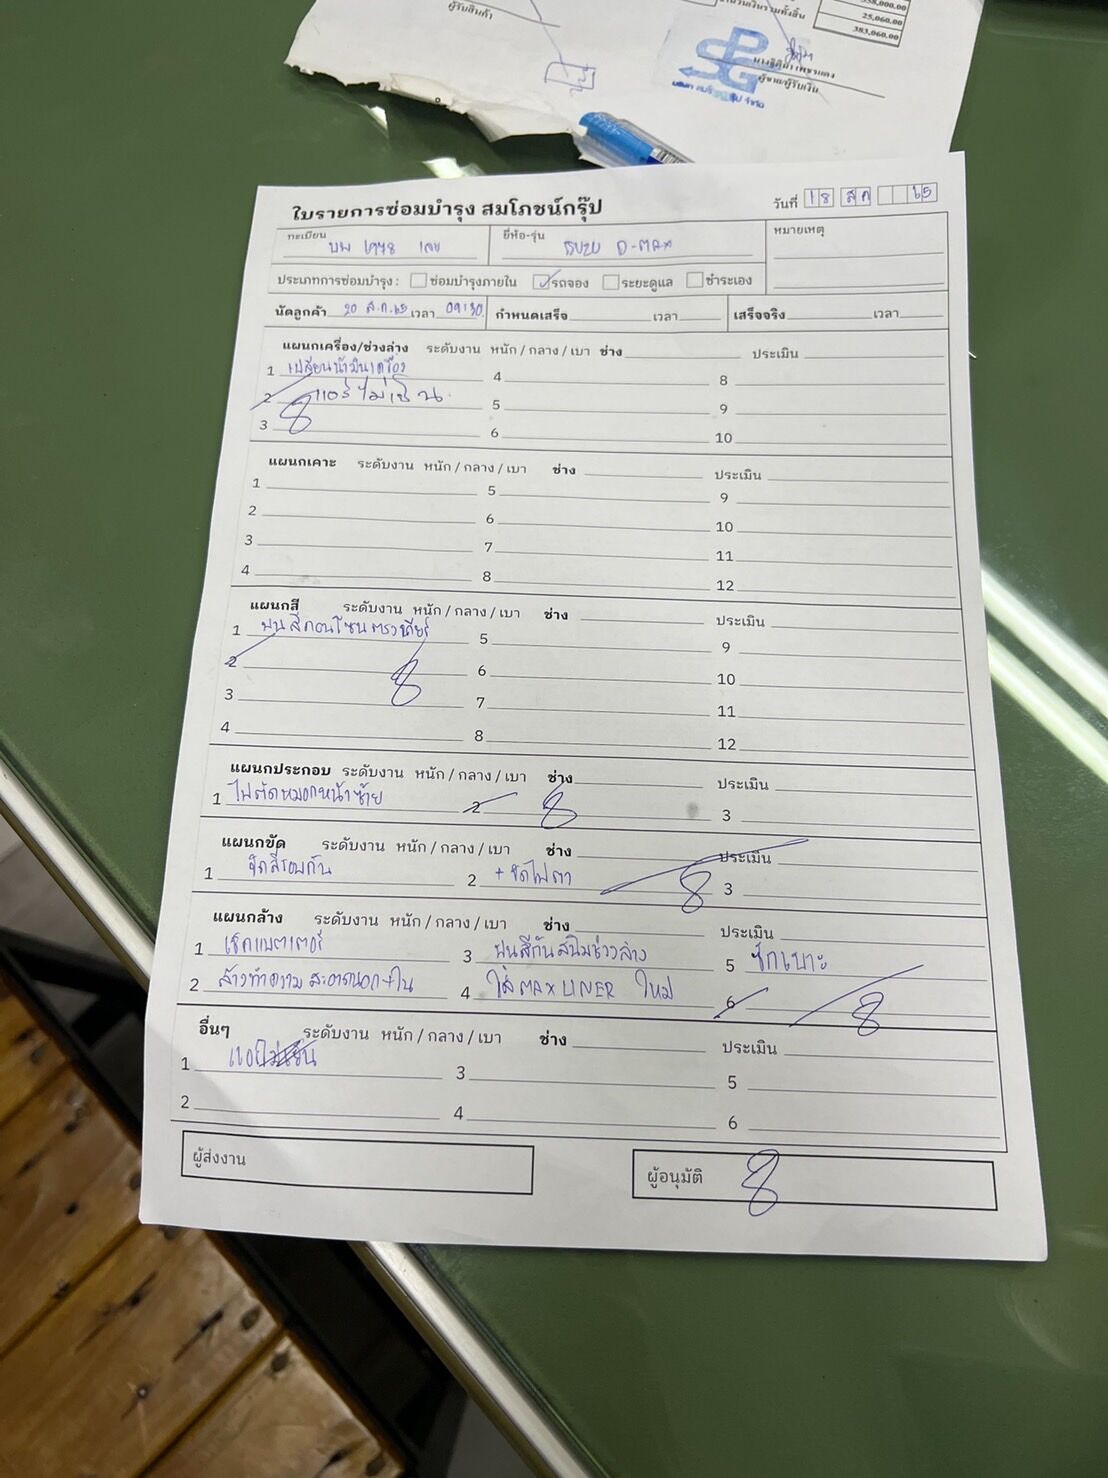 ผู้รับสินค้า
จำนวนเงินรวมทั้งสิ้น
358,000.00
25,060.00
383,060.00
SPG
ผู้ขาย/ผู้รับเงิน
ใบรายการซ่อมบำรุง สมโภชน์กรุ๊ป
วันที่ 18 สค 65
ทะเบียน เลย
ยี่ห้อ-รุ่น ISUZU D-MAX
หมายเหตุ
ประเภทการซ่อมบำรุง : ซ่อมบำรุงภายใน รถจอง ระยะดูแล ชำระเอง
นัดลูกค้า 20 ส.ค.65 เวลา 09:30 กำหนดเสร็จ เวลา เสร็จจริง เวลา
แผนกเครื่อง/ช่วงล่าง ระดับงาน หนัก / กลาง / เบา ช่าง ประเมิน
1 เปลี่ยนน้ำมันเครื่อง 4 8
2 แอร์ไม่เย็น 5 9
3 6 10
แผนกเคาะ ระดับงาน หนัก / กลาง / เบา ช่าง ประเมิน
1 5 9
2 6 10
3 7 11
4 8 12
แผนกสี ระดับงาน หนัก / กลาง / เบา ช่าง ประเมิน
1 พ่นสีคอนโซนตรงเกียร์ 5 9
2 6 10
3 7 11
4 8 12
แผนกประกอบ ระดับงาน หนัก / กลาง / เบา ช่าง ประเมิน
1 ไฟตัดหมอกหน้าซ้าย 2 3
แผนกขัด ระดับงาน หนัก / กลาง / เบา ช่าง ประเมิน
1 ขัดสีรอบคัน 2 + ขัดไฟตา 3
แผนกล้าง ระดับงาน หนัก / กลาง / เบา ช่าง ประเมิน
1 เช็คแบตเตอร์ 3 พ่นสีกันสนิมช่วงล่าง 5 ซักเบาะ
2 ล้างทำความสะอาดนอก+ใน 4 ใส่ MAX LINER ใหม่ 6
อื่นๆ ระดับงาน หนัก / กลาง / เบา ช่าง ประเมิน
1 3 5
2 4 6
ผู้ส่งงาน
ผู้อนุมัติ